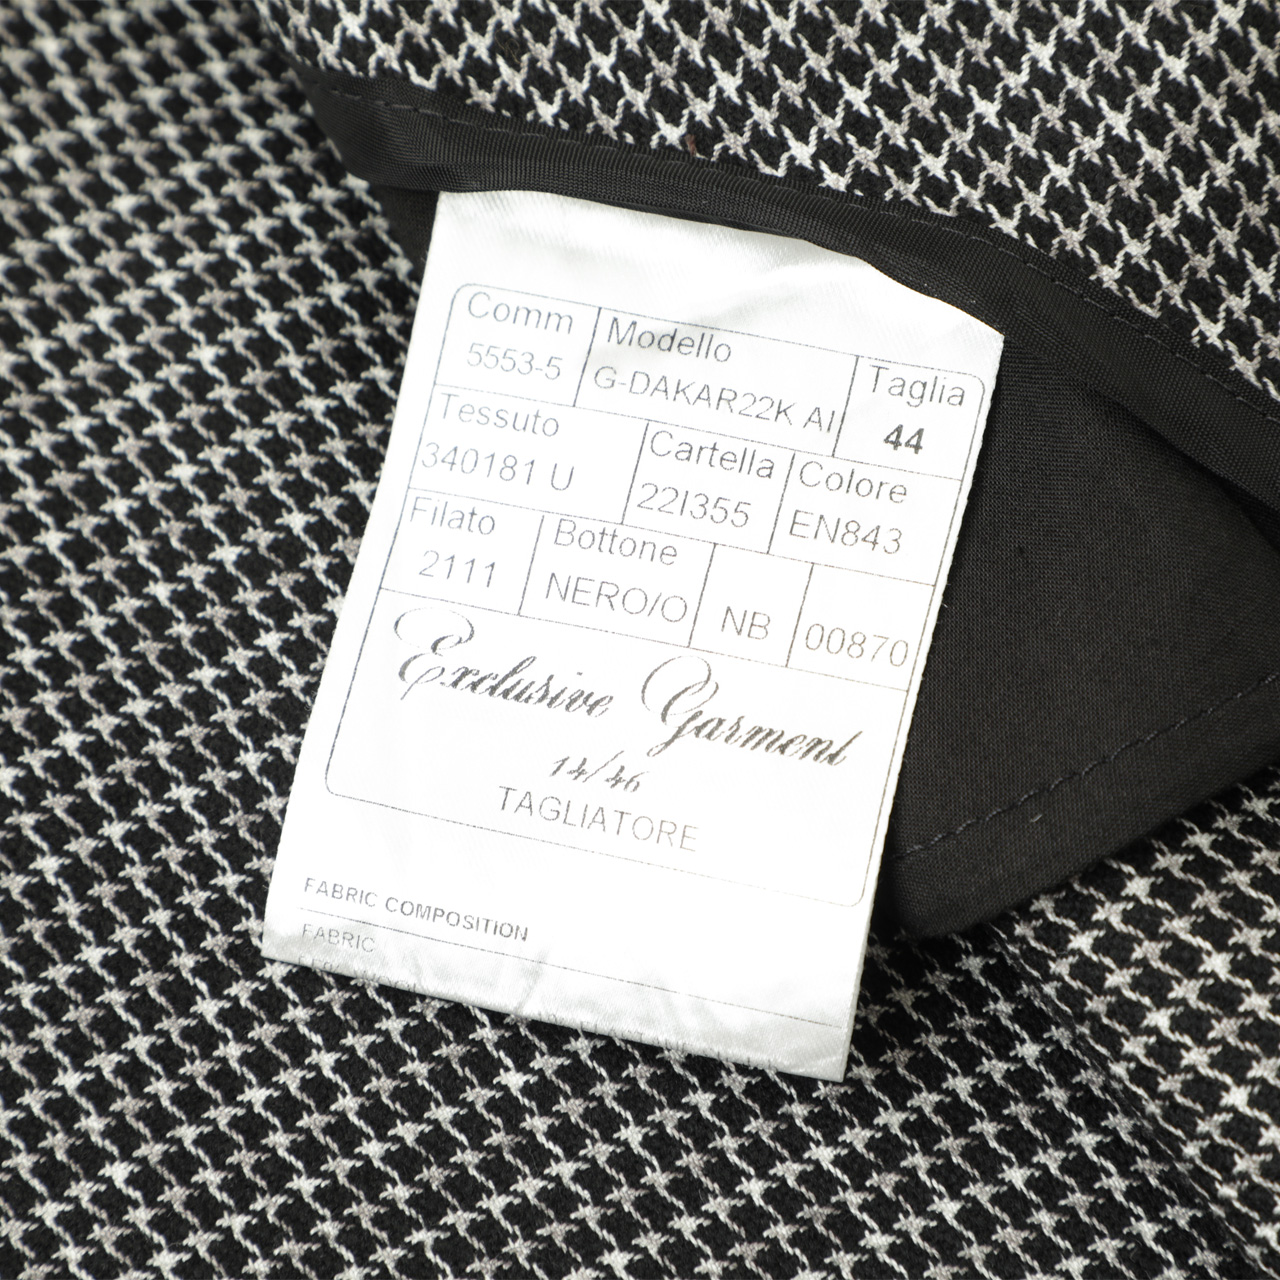 Comm Modello Taglia
5553-5 G-DAKAR22K AI 44
Tessuto Cartella Colore
340181 U 22I355 EN843
Filato Bottone
2111 NERO/O NB 00870
Exclusive Garment
14/46
TAGLIATORE
FABRIC COMPOSITION
FABRIC